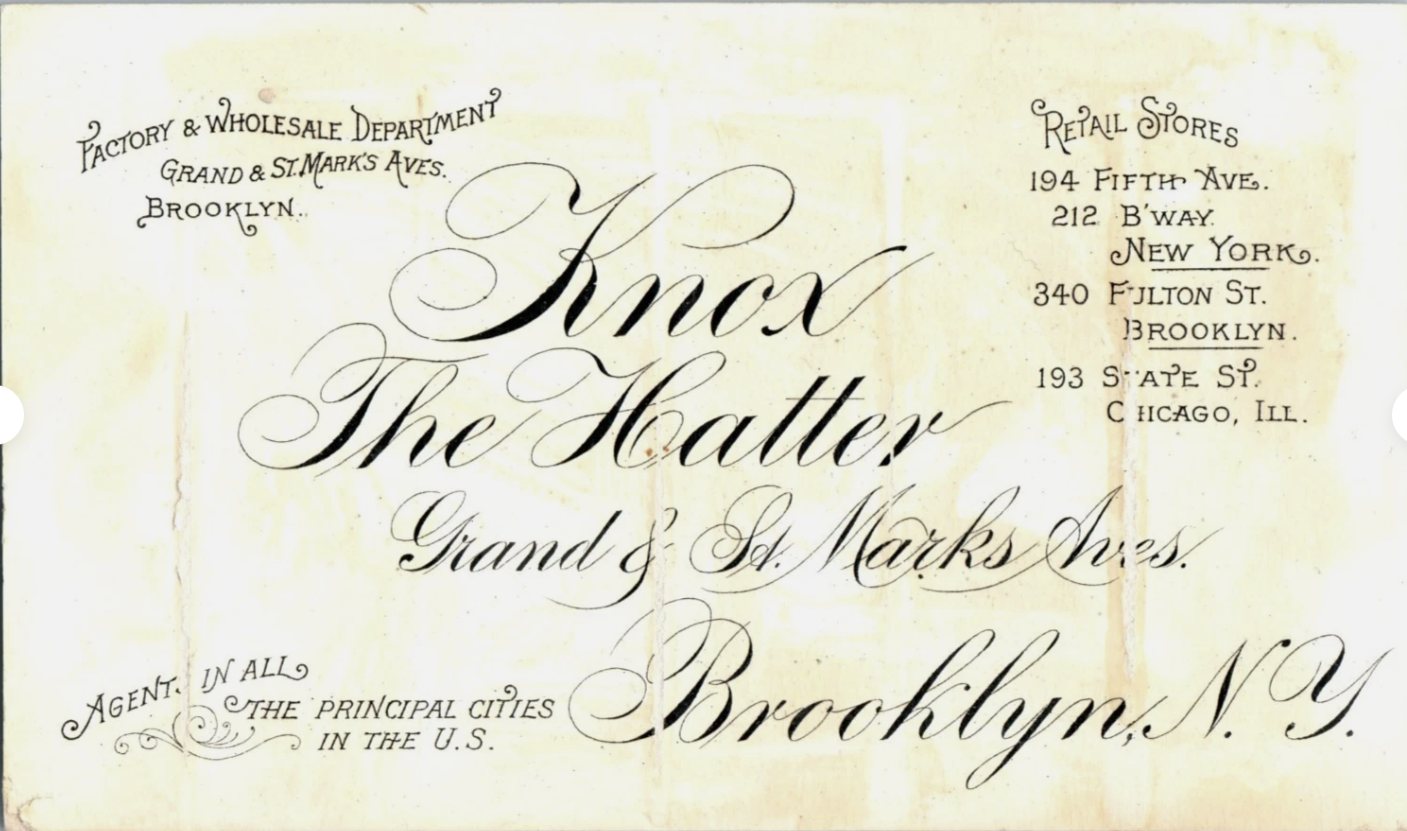 FACTORY & WHOLESALE DEPARTMENT
GRAND & ST. MARK'S AVES.
BROOKLYN.
RETAIL STORES
194 FIFTH AVE.
212 B'WAY.
NEW YORK.
340 FULTON ST.
BROOKLYN.
193 STATE ST.
CHICAGO, ILL.
Knox
The Hatter
Grand & St. Marks Aves.
Brooklyn, N.Y.
AGENTS IN ALL
THE PRINCIPAL CITIES
IN THE U.S.